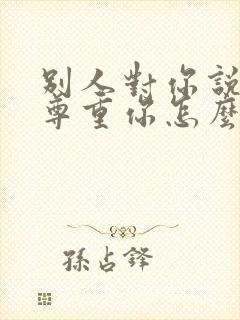 別人對你說
尊重你怎麼
孫占鋒